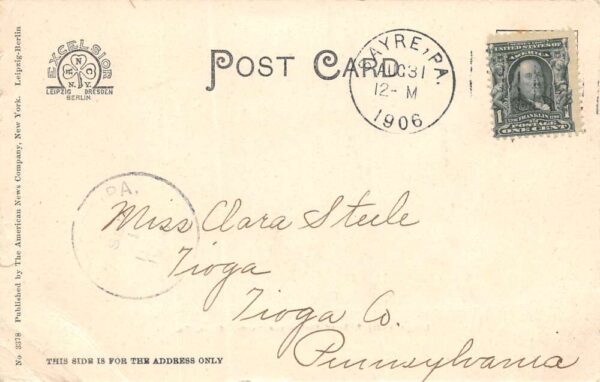 EXCELSIOR
A N C
N.Y.
LEIPZIG DRESDEN
BERLIN
POST CARD
SAYRE, PA.
AUG 31
12- M
1906
UNITED STATES OF AMERICA
FRANKLIN
1 POSTAGE 1
ONE CENT
PA.
Miss Clara Steele
Tioga
Tioga Co.
Pennsylvania
THIS SIDE IS FOR THE ADDRESS ONLY
No. 3378 Published by The American News Company, New York. Leipzig-Berlin